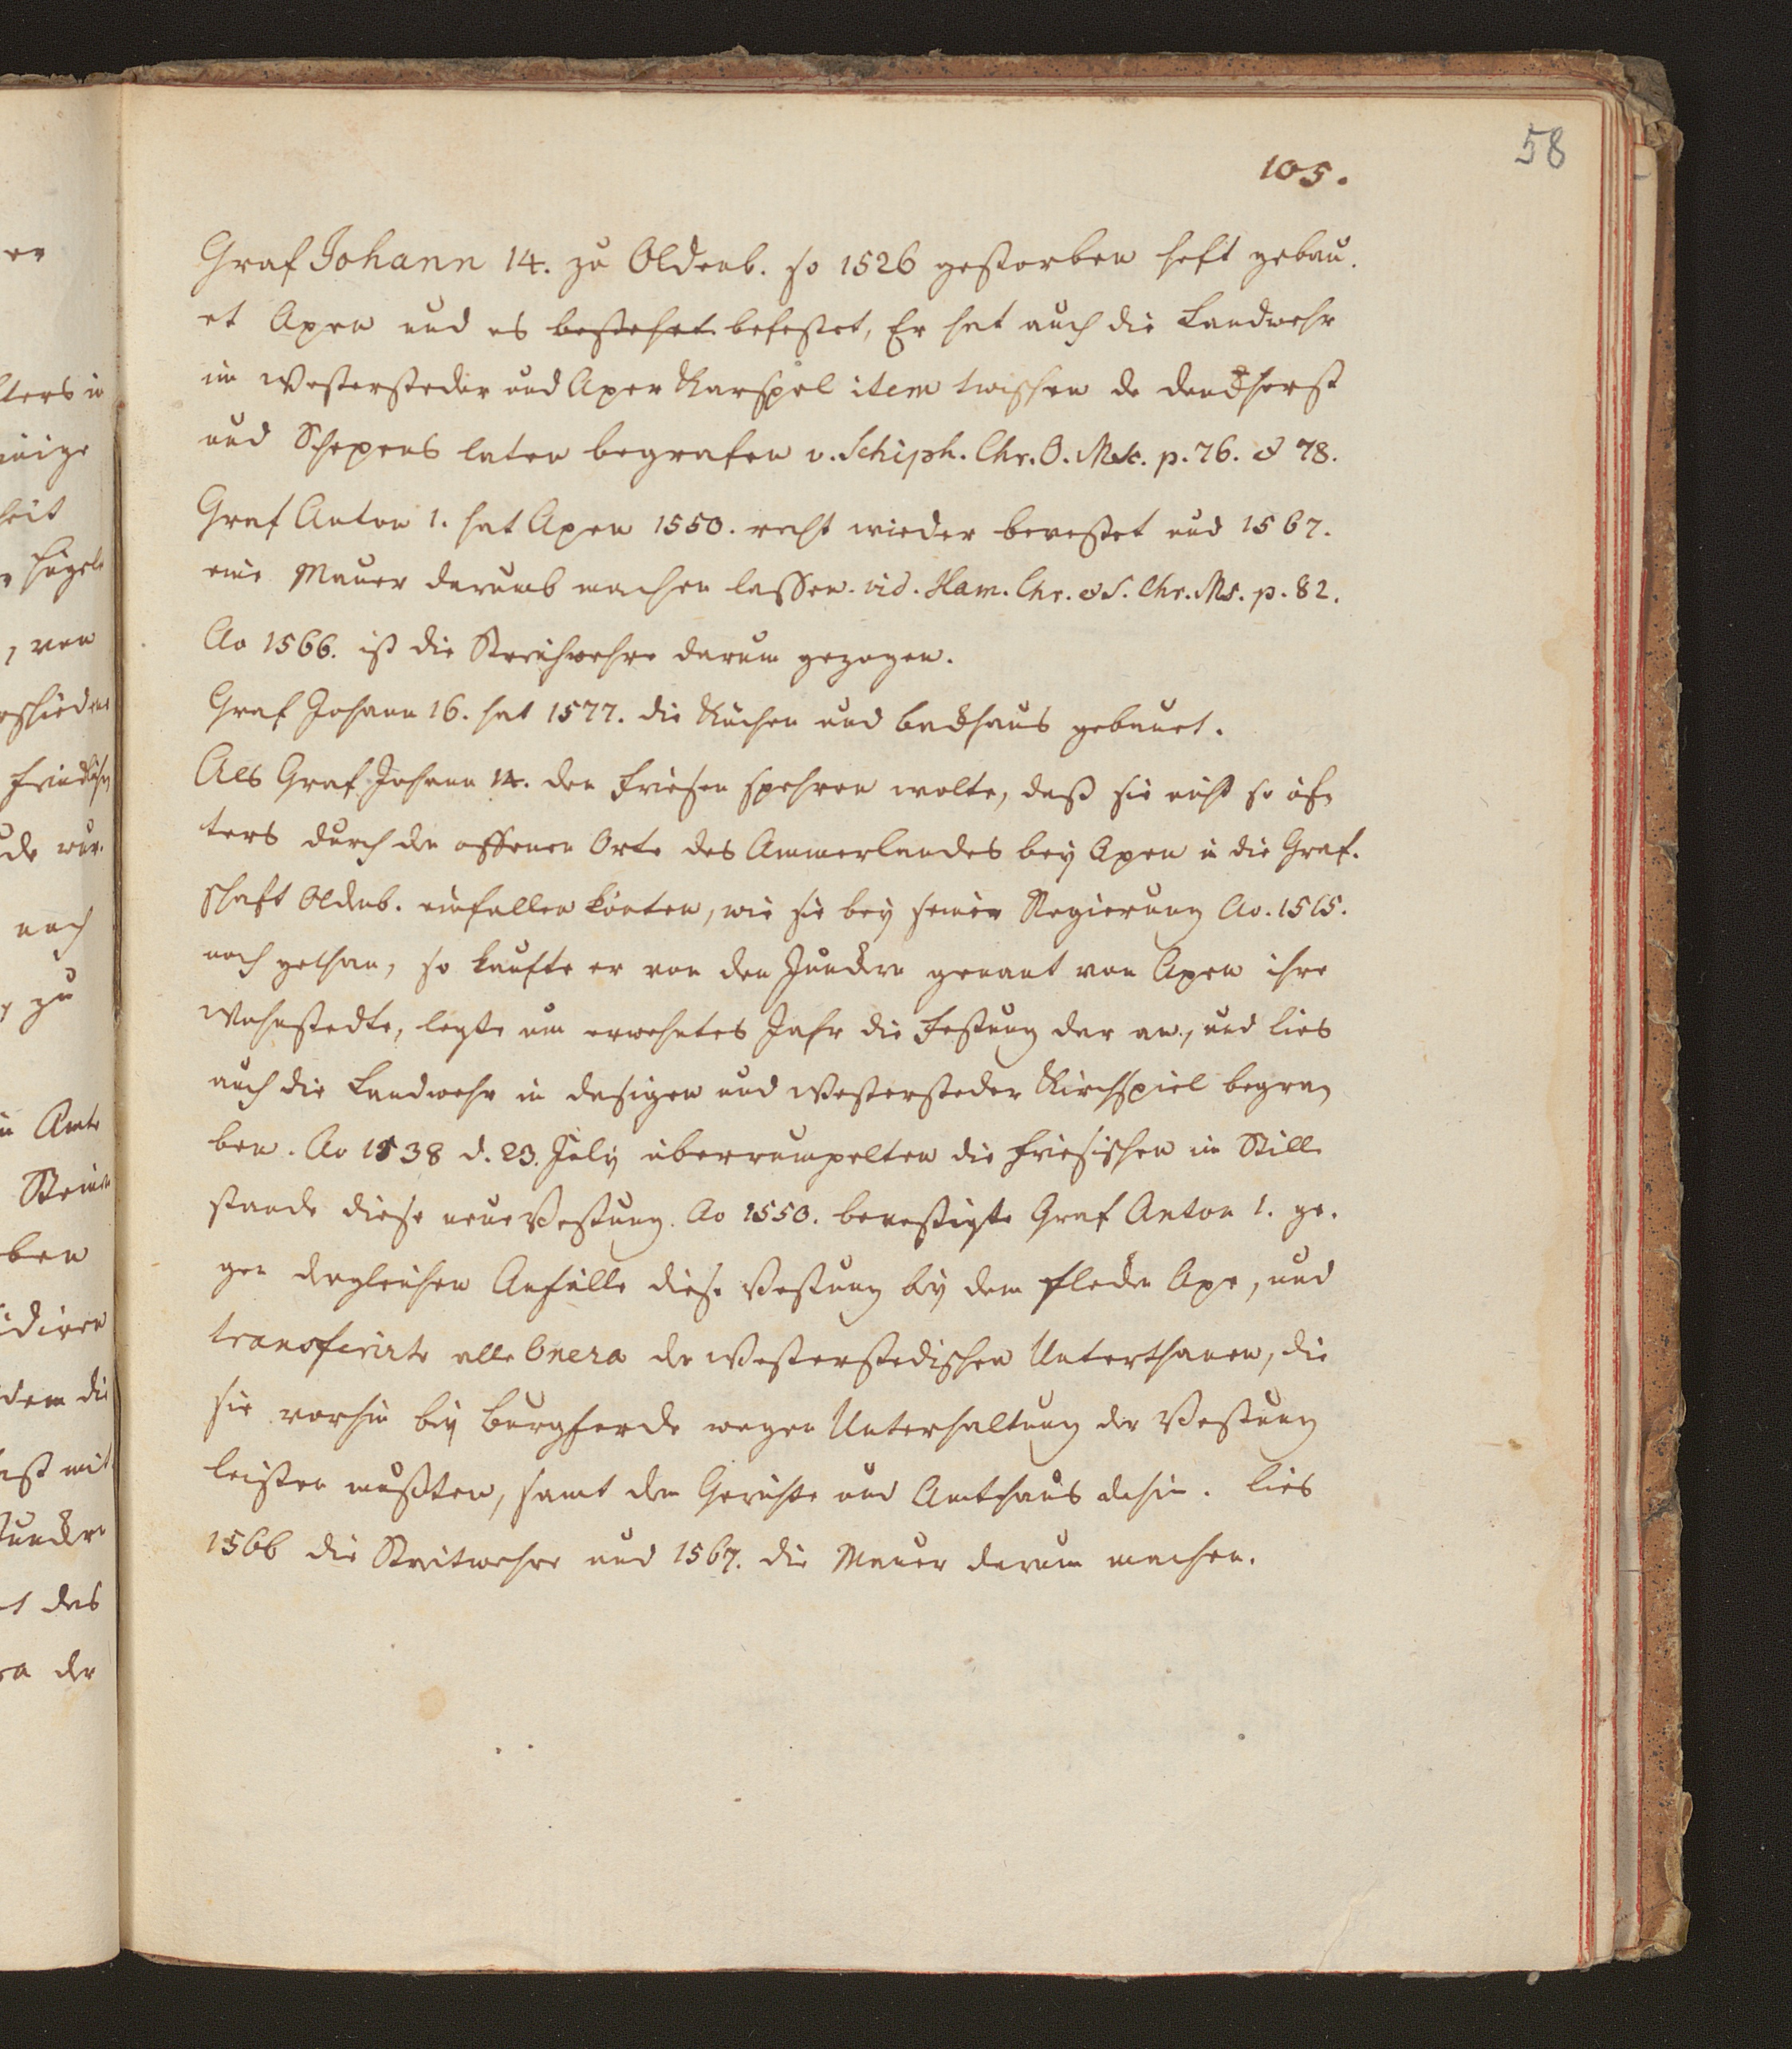 58
105.
Graf Johann 14. zu Oldenb. so 1526 gestorben heft gebau.
et Apen und es bestehet befestet, Er hat auch die Landwehr
im Westersteder und Aper Karspel item twischen de
und Schepens laten begrafen v. Schiph. Chr. O. Msc. p. 76. & 78.
Graf Anton 1. hat Apen 1550. recht wieder bevestet und 1567.
eine Mauer darumb machen lassen. vid. Ham. Chr. & S. Chr. Ms. p. 82.
Ao 1566. ist die Streichwehre darum gezogen.
Graf Johann 16. hat 1577. die Küchen und backhaus gebauet.
Als Graf Johann 14. den Friesen spehren wolte, daß sie nicht so öf-
ters durch den offenen Orte des Ammerlandes bey Apen in die Graf.
schaft Oldenb. einfallen könten, wie sie bey seiner Regierung Ao. 1515.
noch gethan, so kaufte er von den Junckern genant von Apen ihre
Wohnstedte, legte um erwehntes Jahr die Festung dar an, und lies
auch die Landwehr in dasigen und Westersteder Kirchspiel begra-
ben. Ao 1538 d. 23. July überrumpelten die Friesischen im Still
stande diese neue Vestung. Ao 1550. bevestigte Graf Anton 1. ge.
gen dergleichen Anfälle diese Vestung bey dem flecken Ape, und
transferirte alle Onera der Westerstedischen Unterthanen, die
sie vorhin bey burgforde wegen Unterhaltung der Vestung
leisten mußten, samt dem Gerichte und Amthaus dahin. lies
1566 die Streitwehre und 1567. die Mauer darum machen.